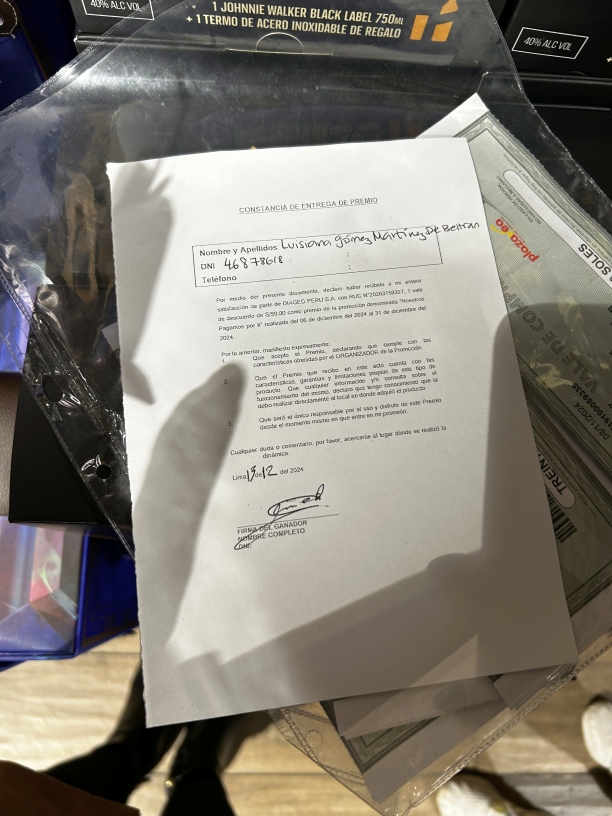 40% ALC VOL
1 JOHNNIE WALKER BLACK LABEL 750ML
+ 1 TERMO DE ACERO INOXIDABLE DE REGALO
40% ALC VOL
CONSTANCIA DE ENTREGA DE PREMIO
Nombre y Apellidos Luisiana gómez Martínez De Beltran
DNI 46878618 :
Teléfono :
Por medio del presente documento, declaro haber recibido a mi entera
satisfacción de parte de DIAGEO PERU S.A. con RUC N°20263158327, 1 vale
de descuento de S/50.00 como premio de la promoción denominada "Nosotros
Pagamos por ti" realizada del 06 de diciembre del 2024 al 31 de diciembre del
2024.
Por lo anterior, manifiesto expresamente:
1. Que acepto el Premio, declarando que cumple con las
características ofrecidas por el ORGANIZADOR de la Promoción.
2. Que el Premio que recibo en este acto cuenta con las
características, garantías y limitaciones propias de este tipo de
producto. Que cualquier información y/o consulta sobre el
funcionamiento del mismo, declaro que tengo conocimiento que la
debo realizar directamente al local en donde adquirí el producto
3. Que seré el único responsable por el uso y disfrute de este Premio
desde el momento mismo en que entre en mi posesión.
Cualquier duda o comentario, por favor, acercarse al lugar dónde se realizó la
dinámica.
Lima 13 de 12 del 2024
FIRMA DEL GANADOR
NOMBRE COMPLETO
DNI:
plazaVea
SOLES
08/11/2024